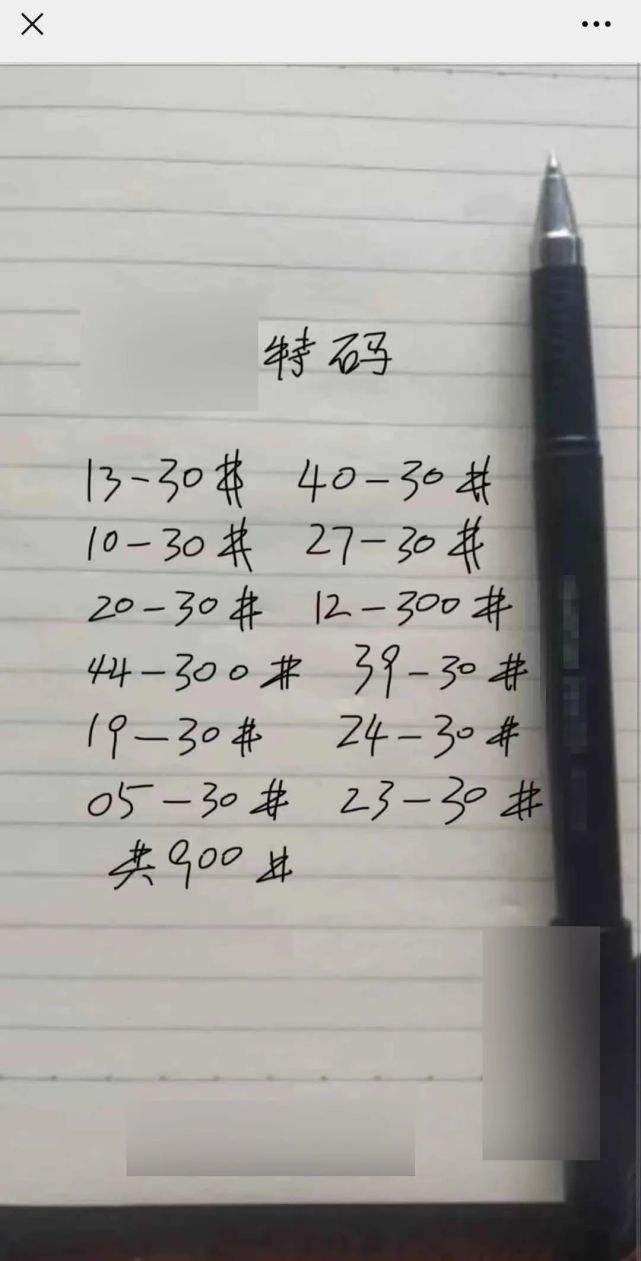 特码
13-30# 40-30#
10-30# 27-30#
20-30# 12-300#
44-300# 39-30#
19-30# 24-30#
05-30# 23-30#
共900#